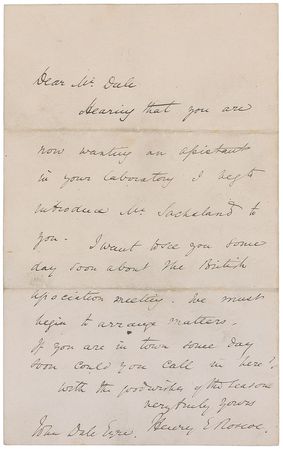 Dear Mr. Dale
Hearing that you are
now wanting an assistant
in your laboratory I beg to
introduce Mr. to
you. I want to see you some
day soon about the British
Association meeting. We must
begin to arrange matters.
If you are in town some day
soon could you call in here?
With the good wishes of the season
very truly yours
John Dale Esqre. Henry E Roscoe.